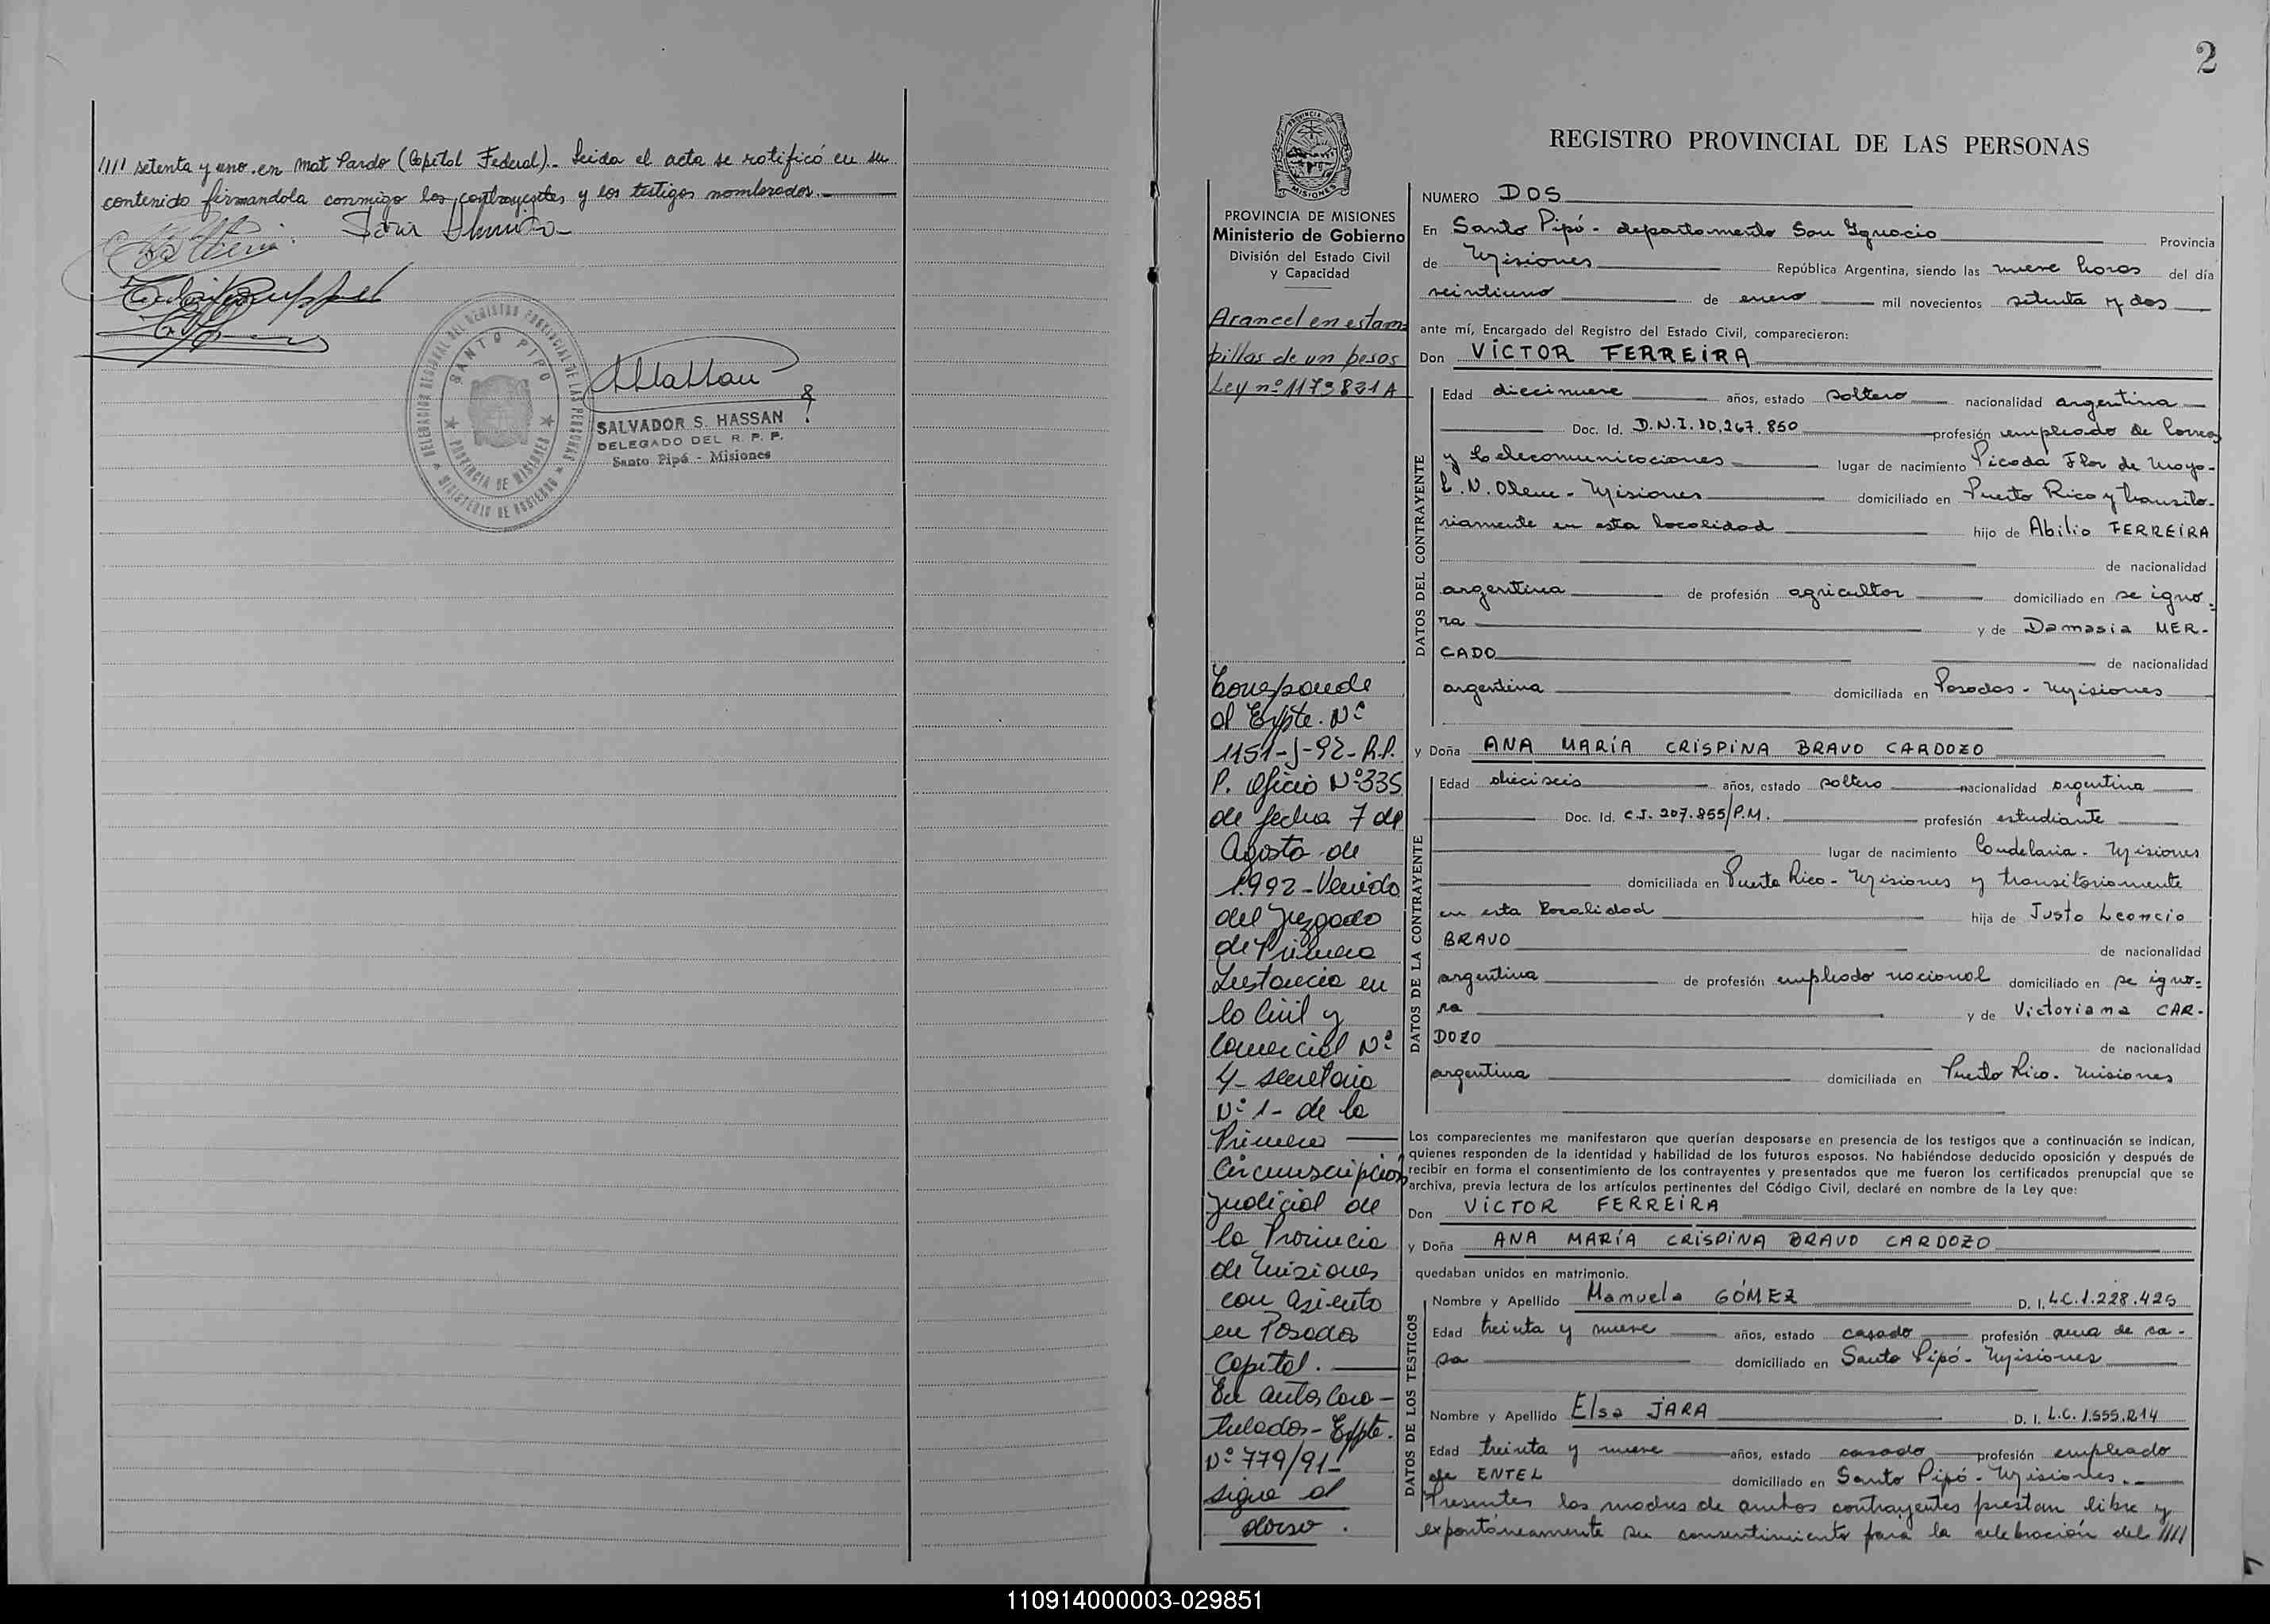 //// setenta y uno. en Mat Pardo (Capital Federal).- Leida el acta se ratificó en su
contenido firmandola conmigo los contrayentes y los testigos nombrados.-
DELEGACION REGIONAL DEL REGISTRO PROVINCIAL DE LAS PERSONAS
SANTO PIPO
PROVINCIA DE MISIONES
MINISTERIO DE GOBIERNO
SALVADOR S. HASSAN
DELEGADO DEL R. P. P.
Santo Pipó - Misiones
2
PROVINCIA DE
MISIONES
PROVINCIA DE MISIONES
Ministerio de Gobierno
División del Estado Civil
y Capacidad
Arancel en estam-
pillas de un pesos
Ley nº 1173831 A
Corresponde
al Expte. Nº
1151-J-92-R.P.
P. Oficio Nº 335
de fecha 7 de
Agosto de
1.992 - Venido
del Juzgado
de Primera
Instancia en
lo Civil y
Comercial Nº
4 - secretaria
Nº 1 - de la
Primera
Circunscripción
Judicial de
la Provincia
de Misiones
con asiento
en Posadas
Capital.
En autos Cara-
tulados - Expte.
Nº 779/91-
sigue al
dorso.
REGISTRO PROVINCIAL DE LAS PERSONAS
NUMERO DOS
En Santo Pipó - departamento San Ignacio Provincia
de Misiones República Argentina, siendo las nueve horas del día
veintiuno de enero mil novecientos setenta y dos
ante mí, Encargado del Registro del Estado Civil, comparecieron:
Don VÍCTOR FERREIRA
DATOS DEL CONTRAYENTE
Edad diecinueve años, estado soltero nacionalidad argentina
Doc. Id. D.N.I. 10.267.850 profesión empleado de Correos
y telecomunicaciones lugar de nacimiento Picada Flor de Mayo-
L.N. Alem - Misiones domiciliado en Puerto Rico y transito-
riamente en esta localidad hijo de Abilio FERREIRA
de nacionalidad
argentina de profesión agricultor domiciliado en se igno-
ra y de Damasia MER-
CADO de nacionalidad
argentina domiciliada en Posadas - Misiones
y Doña ANA MARÍA CRISPINA BRAVO CARDOZO
DATOS DE LA CONTRAYENTE
Edad dieciseis años, estado soltera nacionalidad argentina
Doc. Id. C.I. 207.855/P.M. profesión estudiante
lugar de nacimiento Candelaria - Misiones
domiciliada en Puerto Rico - Misiones y transitoriamente
en esta localidad hija de Justo Leoncio
BRAVO de nacionalidad
argentina de profesión empleado nacional domiciliado en se igno-
ra y de Victoriana CAR-
DOZO de nacionalidad
argentina domiciliada en Puerto Rico - Misiones
Los comparecientes me manifestaron que querían desposarse en presencia de los testigos que a continuación se indican,
quienes responden de la identidad y habilidad de los futuros esposos. No habiéndose deducido oposición y después de
recibir en forma el consentimiento de los contrayentes y presentados que me fueron los certificados prenupcial que se
archiva, previa lectura de los artículos pertinentes del Código Civil, declaré en nombre de la Ley que:
Don VICTOR FERREIRA
y Doña ANA MARÍA CRISPINA BRAVO CARDOZO
quedaban unidos en matrimonio.
DATOS DE LOS TESTIGOS
Nombre y Apellido Manuela GÓMEZ D. I. L.C. 1.228.425
Edad treinta y nueve años, estado casado profesión ama de ca-
sa domiciliado en Santo Pipó - Misiones
Nombre y Apellido Elsa JARA D. I. L.C. 1.555.214
Edad treinta y nueve años, estado casado profesión empleado
de ENTEL domiciliado en Santo Pipó - Misiones.-
Presentes las madres de ambos contrayentes prestan libre y
expontáneamente su consentimiento para la celebración del ////
110914000003-029851